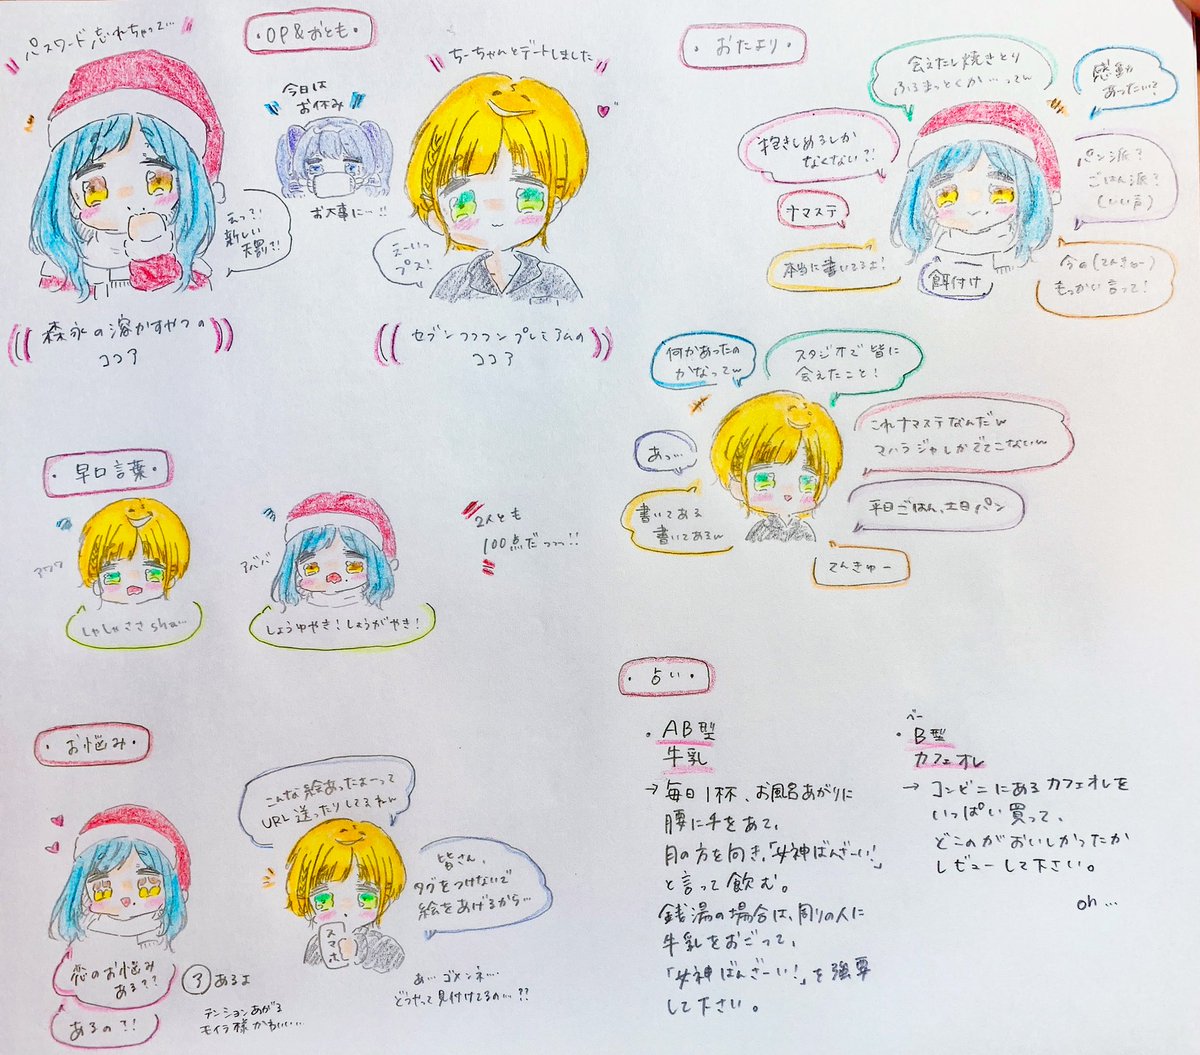 パスワード忘れちゃって…
・OP&おとも・
今日は
お休み
お大事に…!!
ちーちゃんとデートしました
えっ?!
新しい
天罰?!
えーいっ
プス!
森永の溶かすやつの
ココア
セブンフフフンプレミアムの
ココア
・早口言葉・
アワワ
しゃしゃささsha…
アババ
しょうゆやき!しょうがやき!
2人とも
100点だっっっ!!
・お悩み・
恋のお悩み
ある??
あるの?!
ア あるよ
テンションあがる
モイラ様かわいい…
こんな絵あったよーって
URL送ったりしてるれんw
皆さん、
タグをつけないで
絵をあげるから…
スマホ
あ…ゴメンネ…
どうやって見付けてるの…??
・おたより・
会えたし焼きとり
ふるまっとくか…ってw
感動
あったいて?
抱きしめるしか
なくない?!
パン派?
ごはん派?
(いい声)
ナマステ
本当に書いてるよ!
餌付け
今の(てんきゅー)
もっかい言って!
何があったの
かなってw
スタジオで皆に
会えたこと!
これナマステなんだw
マハラジャしかでてこないw
あっ…
平日ごはん、土日パン
書いてある
書いてあるw
てんきゅー
・占い・
・AB型
牛乳
→毎日1杯、お風呂あがりに
腰に手をあて、
月の方を向き、「女神ばんざーい!」
と言って飲む。
銭湯の場合は、周りの人に
牛乳をおごって、
「女神ばんざーい!」を強要
して下さい。
ベー
・B型
カフェオレ
→コンビニにあるカフェオレを
いっぱい買って、
どこのがおいしかったか
レビューして下さい。
oh…